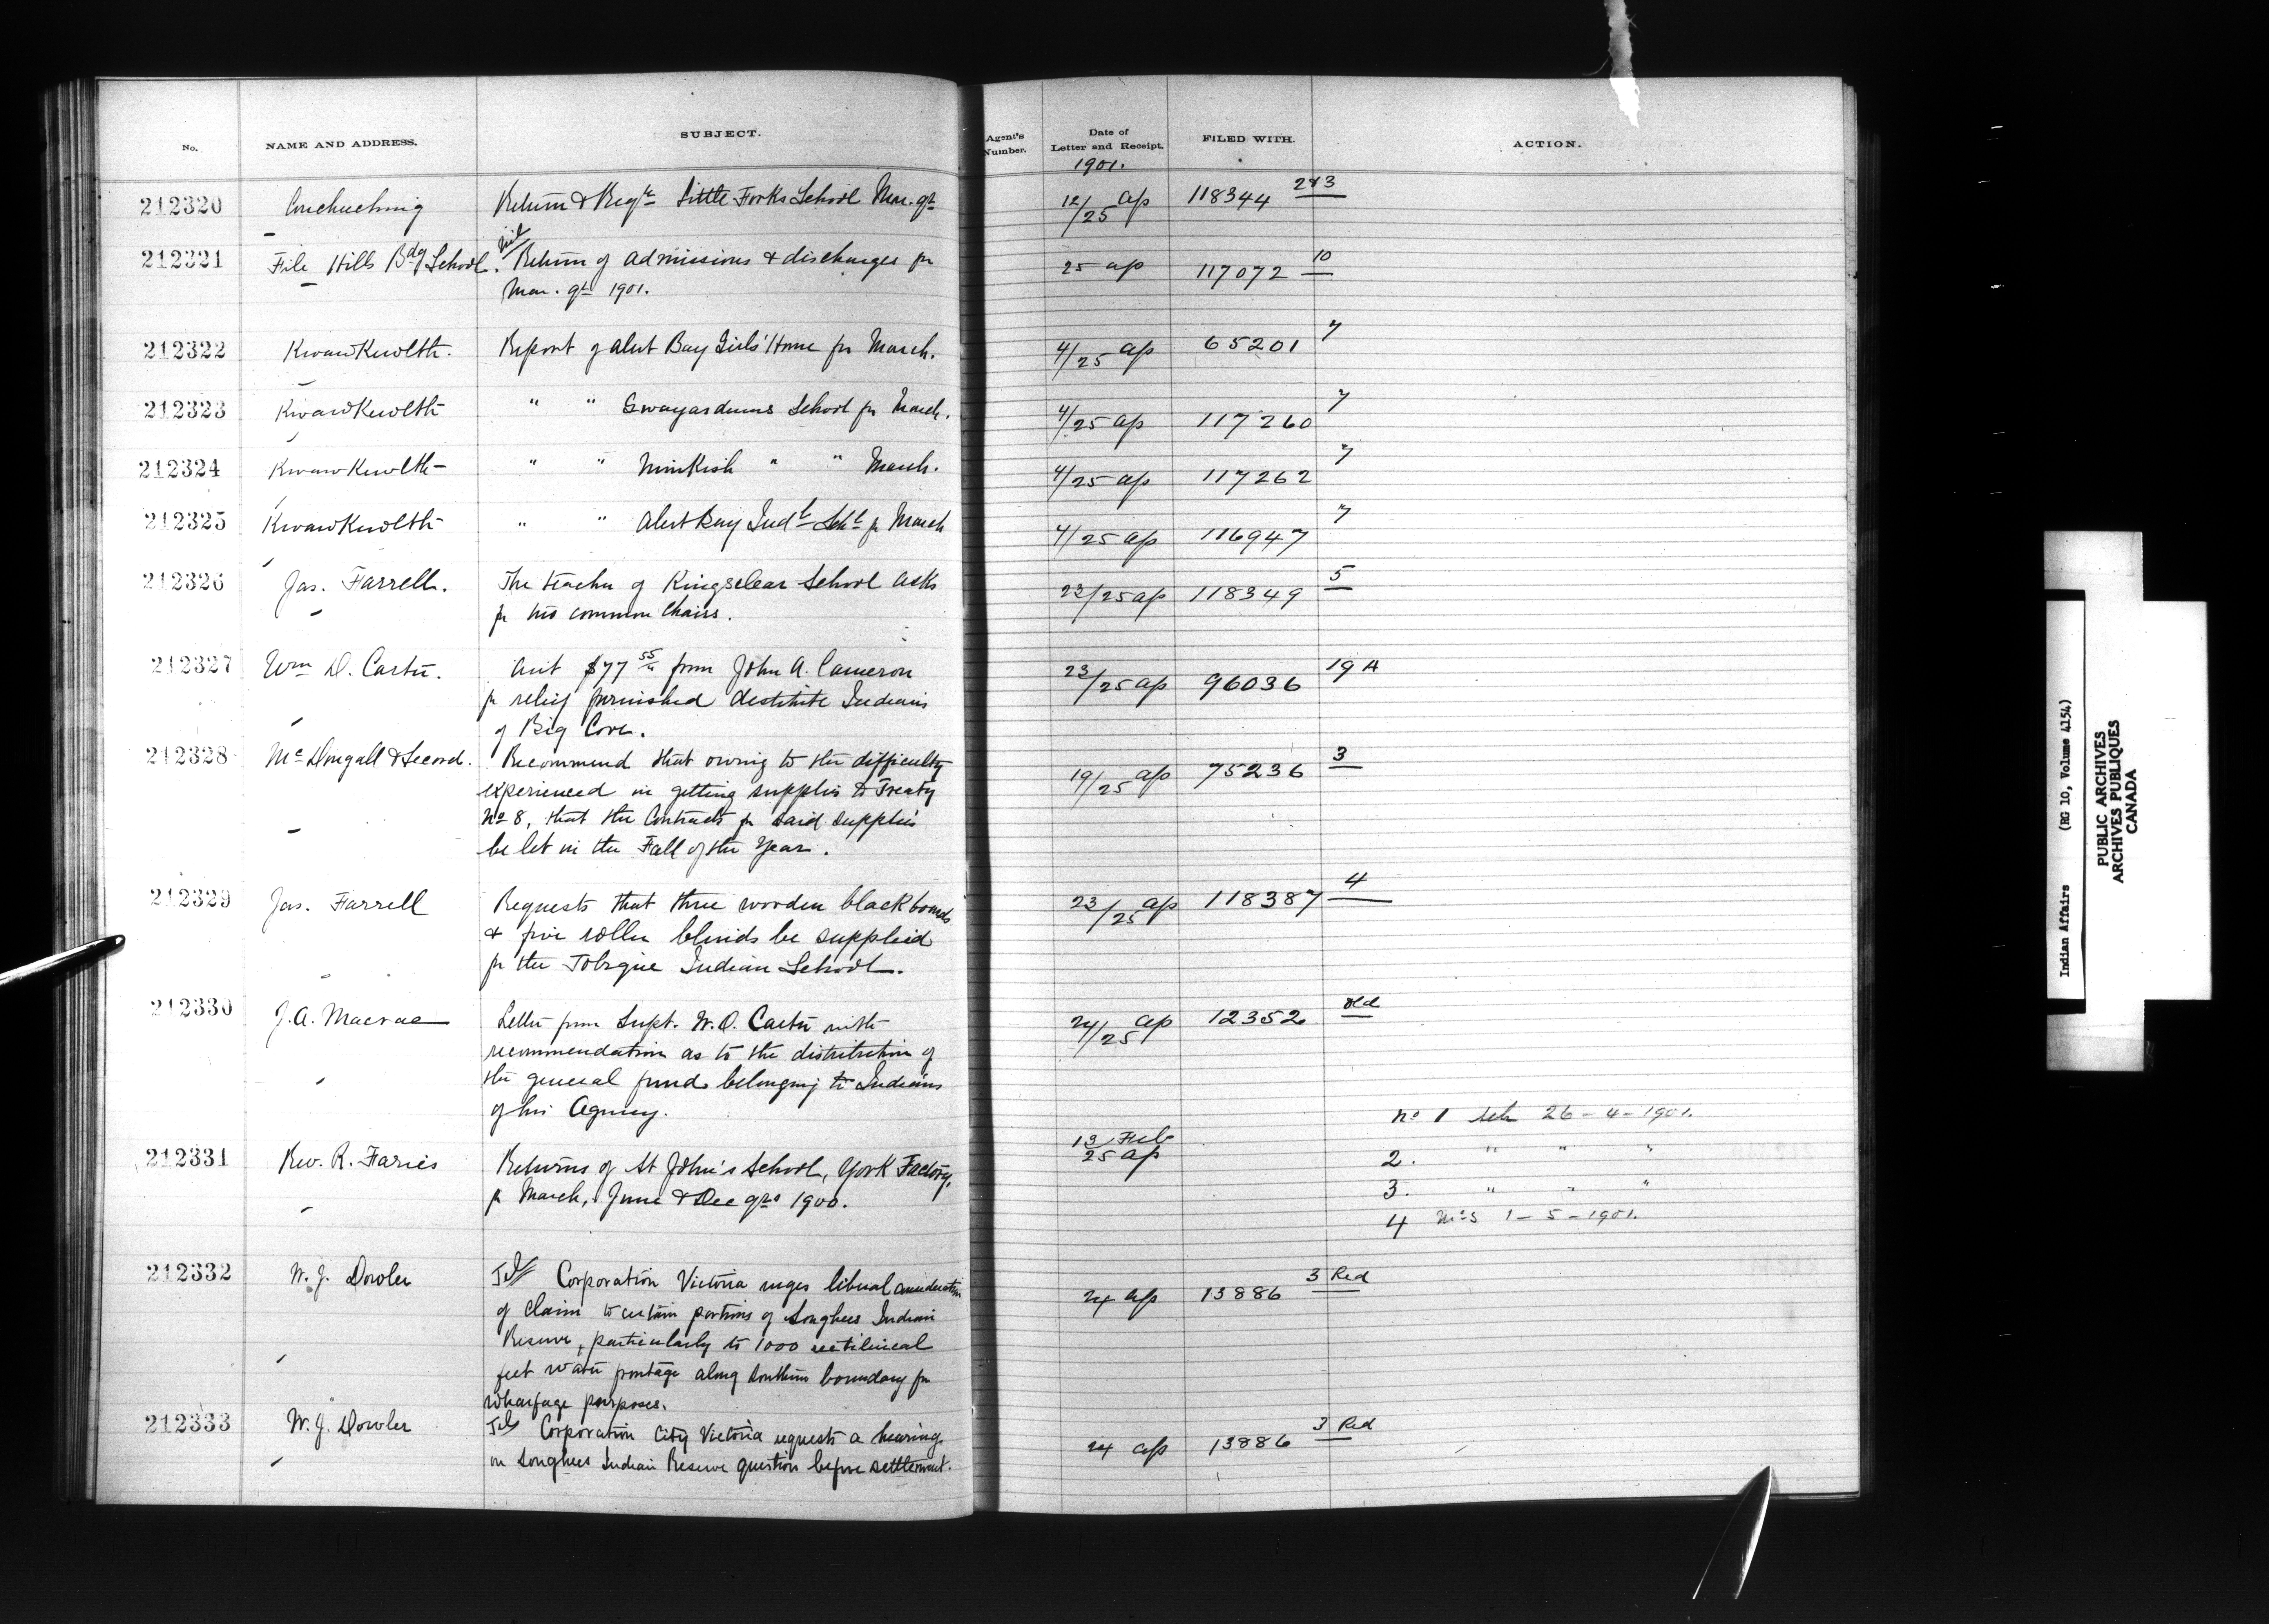 No. NAME AND ADDRESS. SUBJECT. Agent's Number. Date of Letter and Receipt. FILED WITH. ACTION.
1901.
212320 Couchuching Return & Regr Little Forks School Mar. qr 12/25 ap 118344 2&3
212321 File Hills Bdg School. Nil Return of admissions & discharges for 25 ap 117072 10
Mar. qr 1901.
212322 KwawKewlth. Report of Alert Bay Girls' Home for March. 4/25 ap 65201 7
212323 KwawKewlth " " Gwayasdums School for March. 4/25 ap 117260 7
212324 KwawKewlth " " Nimkish " " March. 4/25 ap 117262 7
212325 KwawKewlth " " Alert Bay Indl Schl for March 4/25 ap 116947 7
212326 Jas. Farrell. The teacher of Kingsclear School asks 23/25 ap 118349 5
for two common chairs.
212327 Wm D. Carter. Acct $77 55 from John A. Cameron 23/25 ap 96036 19 A
for relief furnished destitute Indians
of Big Cove.
212328 McDougall & Secord. Recommend that owing to the difficulty 19/25 ap 75236 3
experienced in getting supplies to Treaty
No 8, that the Contracts for said supplies
be let in the Fall of the Year.
212329 Jas. Farrell Requests that three wooden blackboards 23/25 ap 118387 4
& five roller blinds be supplied
for the Tobique Indian School.
212330 J.A. Macrae Letter from Supt. W.D. Carter with 24/25 ap 12352 old
recommendation as to the distribution of
the general fund belonging to Indians
of his Agency.
No 1 26-4-1901.
212331 Rev. R. Faries Returns of St John's School, York Factory, 13 Feb 25 ap 2. " " "
for March, June & Dec qrs 1900. 3. " " "
4 1-5-1901.
212332 W.J. Dowler Tel Corporation Victoria urges liberal consideration 24 ap 13886 3 Red
of claim to certain portions of Songhees Indian
Reserve, particularly to 1000 rectilineal
feet water frontage along southern boundary for
wharfage purposes.
212333 W.J. Dowler Tel Corporation City Victoria requests a hearing 24 ap 13886 3 Red
on Songhees Indian Reserve question before settlement.
Indian Affairs (RG 10, Volume 4154)
PUBLIC ARCHIVES
ARCHIVES PUBLIQUES
CANADA